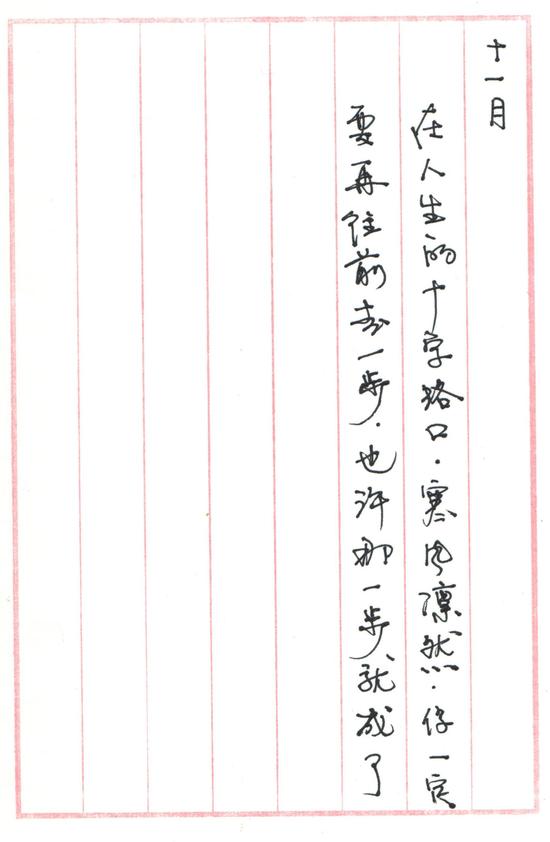 十一月
在人生的十字路口.寒风凛然.你一定
要再往前走一步.也许那一步就成了